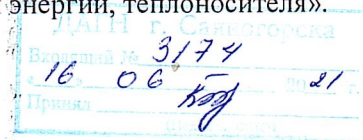 энергии, теплоносителя».
ДАГН г. Саяногорска
Входящий № 3174
16 06 2021 г.
Принял